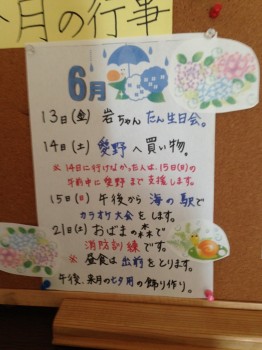 今月の行事
6月
13日(金) 岩ちゃん たん生日会。
14日(土) 愛野へ買い物。
※ 14日に行けなかった人は、15日(日)の
午前中に愛野まで支援します。
15日(日) 午後から 海の駅で
カラオケ大会 をします。
21日(土) おばまの森で
消防訓練です。
※ 昼食は出前をとります。
午後、来月の七夕の飾り作り。